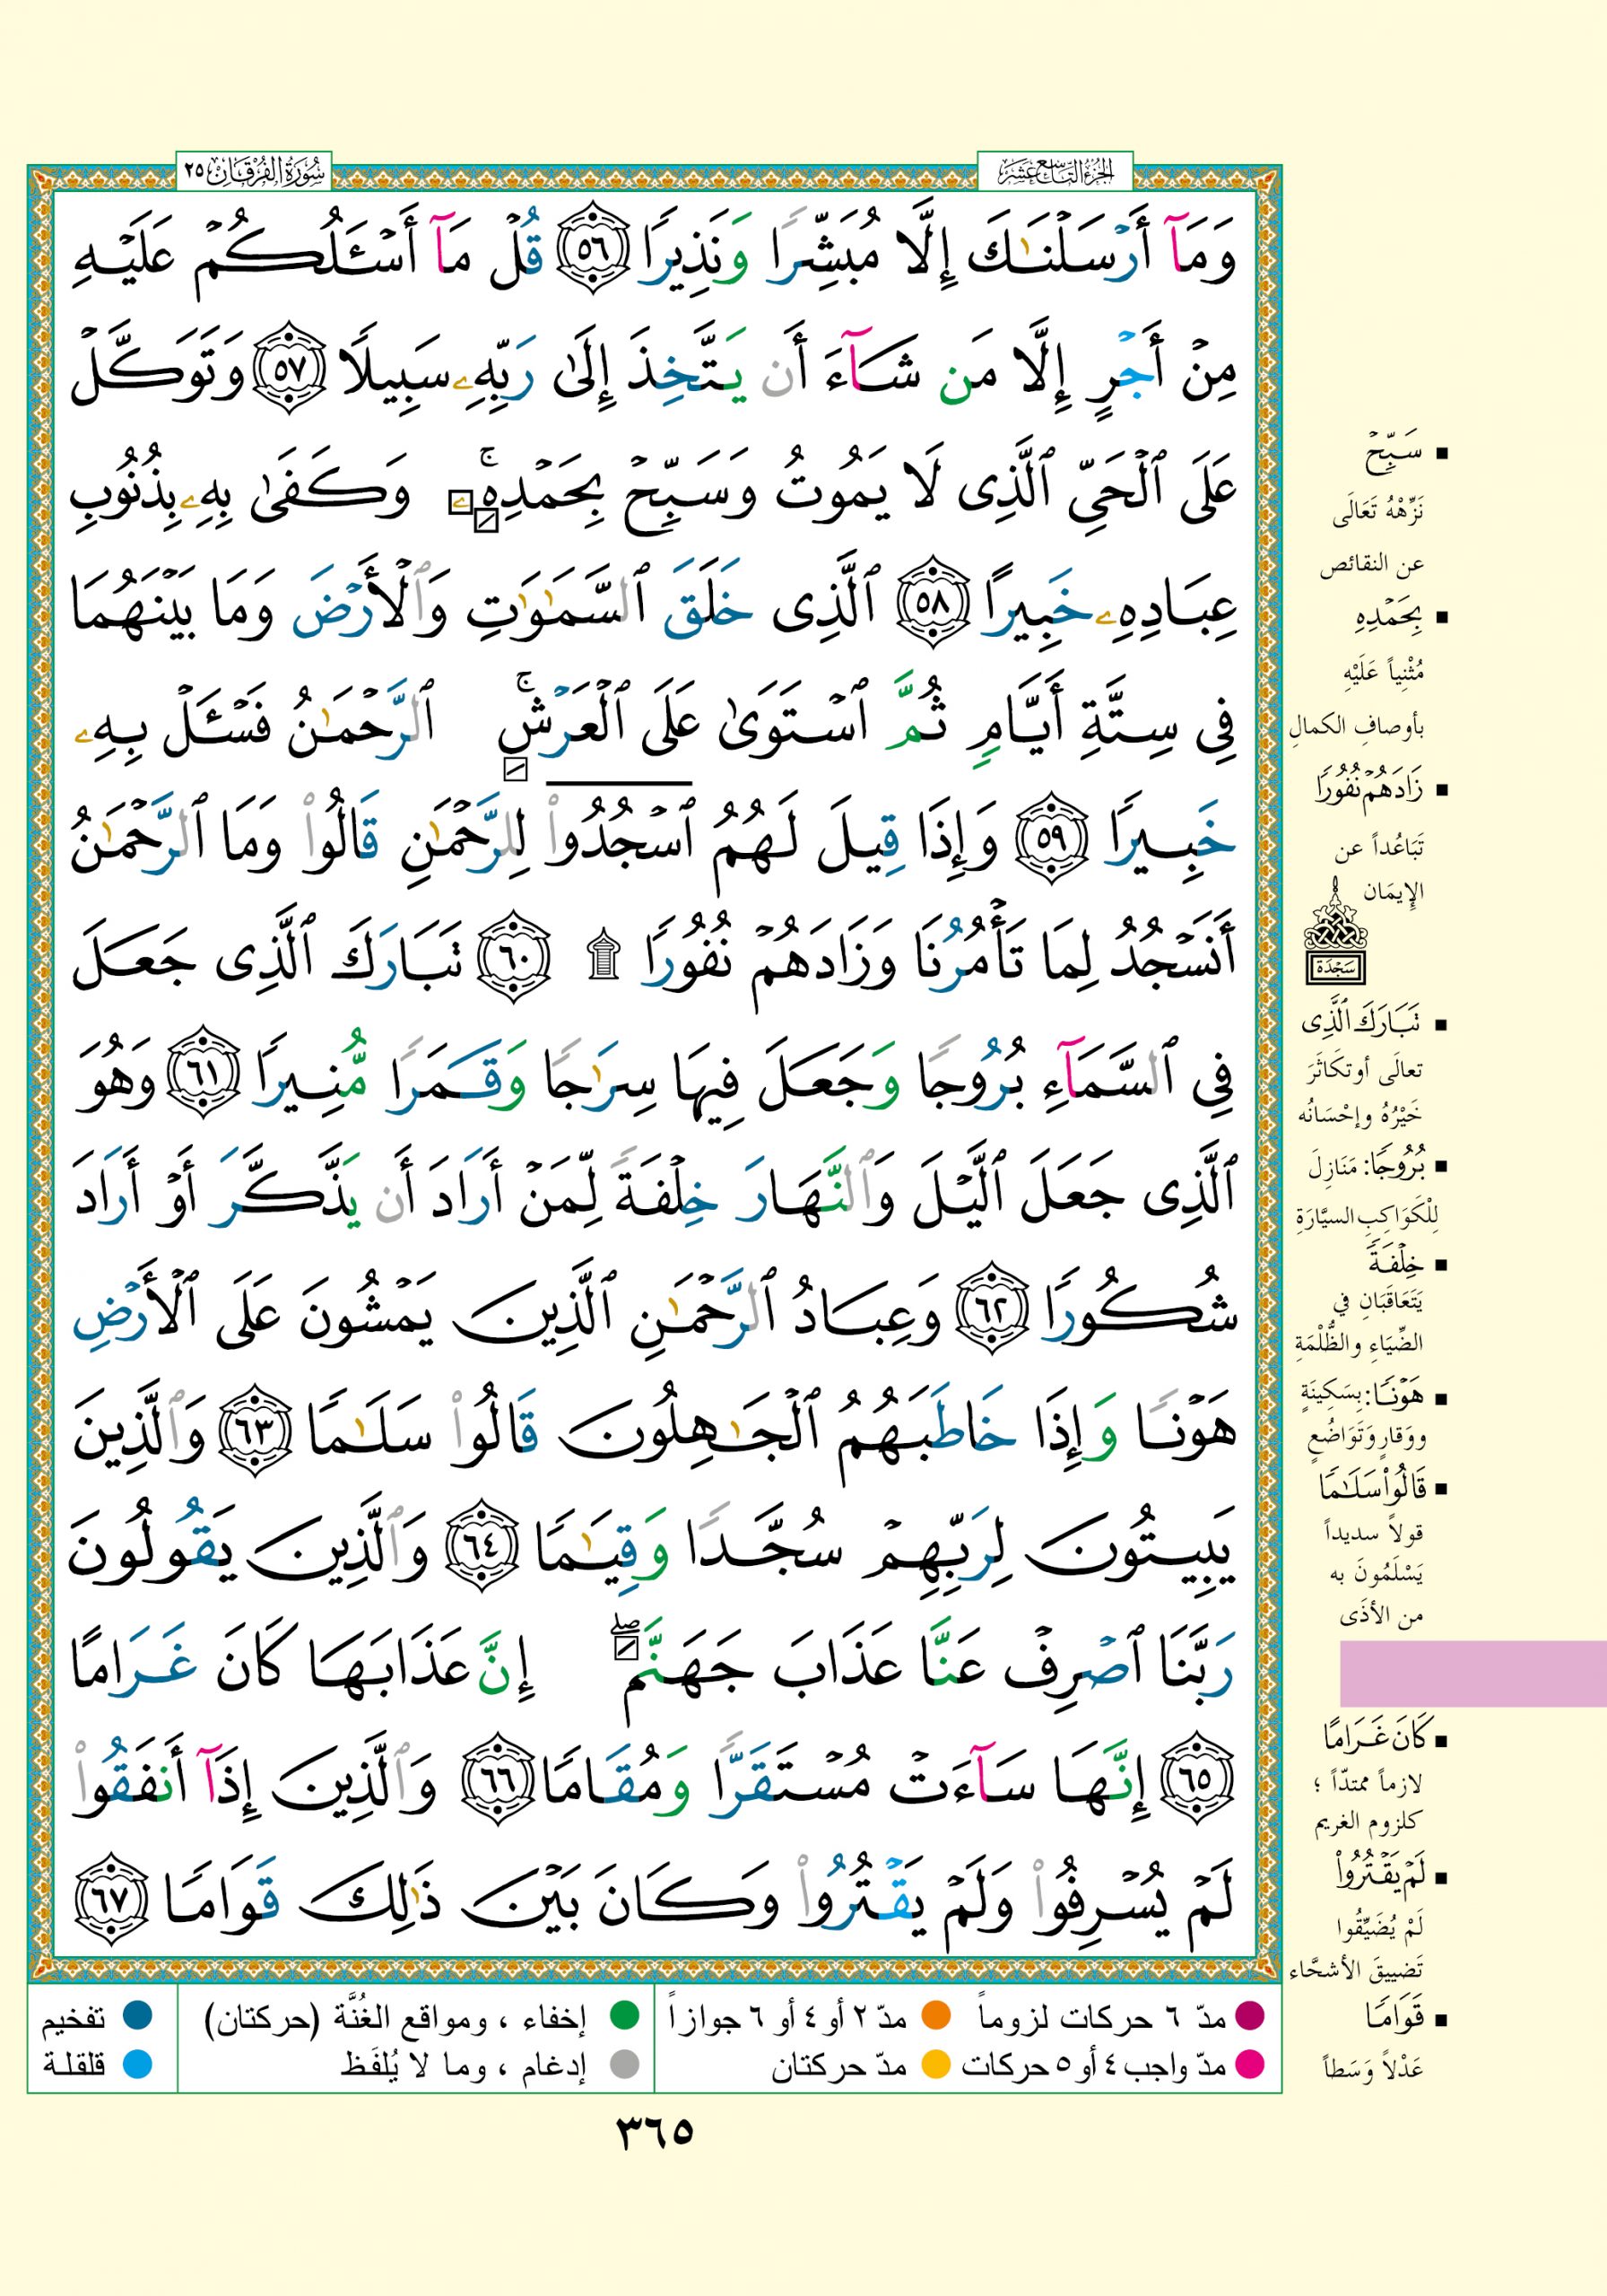 الجزء التاسع عشر
سورة الفرقان ٢٥
وَمَآ أَرْسَلْنَٰكَ إِلَّا مُبَشِّرًا وَنَذِيرًا ٥٦ قُلْ مَآ أَسْـَٔلُكُمْ عَلَيْهِ
مِنْ أَجْرٍ إِلَّا مَن شَآءَ أَن يَتَّخِذَ إِلَىٰ رَبِّهِۦ سَبِيلًا ٥٧ وَتَوَكَّلْ
عَلَى ٱلْحَىِّ ٱلَّذِى لَا يَمُوتُ وَسَبِّحْ بِحَمْدِهِۦ ۚ وَكَفَىٰ بِهِۦ بِذُنُوبِ
عِبَادِهِۦ خَبِيرًا ٥٨ ٱلَّذِى خَلَقَ ٱلسَّمَٰوَٰتِ وَٱلْأَرْضَ وَمَا بَيْنَهُمَا
فِى سِتَّةِ أَيَّامٍ ثُمَّ ٱسْتَوَىٰ عَلَى ٱلْعَرْشِ ۚ ٱلرَّحْمَٰنُ فَسْـَٔلْ بِهِۦ
خَبِيرًا ٥٩ وَإِذَا قِيلَ لَهُمُ ٱسْجُدُوا۟ لِلرَّحْمَٰنِ قَالُوا۟ وَمَا ٱلرَّحْمَٰنُ
أَنَسْجُدُ لِمَا تَأْمُرُنَا وَزَادَهُمْ نُفُورًا ۩ ٦٠ تَبَارَكَ ٱلَّذِى جَعَلَ
فِى ٱلسَّمَآءِ بُرُوجًا وَجَعَلَ فِيهَا سِرَٰجًا وَقَمَرًا مُّنِيرًا ٦١ وَهُوَ
ٱلَّذِى جَعَلَ ٱلَّيْلَ وَٱلنَّهَارَ خِلْفَةً لِّمَنْ أَرَادَ أَن يَذَّكَّرَ أَوْ أَرَادَ
شُكُورًا ٦٢ وَعِبَادُ ٱلرَّحْمَٰنِ ٱلَّذِينَ يَمْشُونَ عَلَى ٱلْأَرْضِ
هَوْنًا وَإِذَا خَاطَبَهُمُ ٱلْجَٰهِلُونَ قَالُوا۟ سَلَٰمًا ٦٣ وَٱلَّذِينَ
يَبِيتُونَ لِرَبِّهِمْ سُجَّدًا وَقِيَٰمًا ٦٤ وَٱلَّذِينَ يَقُولُونَ
رَبَّنَا ٱصْرِفْ عَنَّا عَذَابَ جَهَنَّمَ ۖ إِنَّ عَذَابَهَا كَانَ غَرَامًا
٦٥ إِنَّهَا سَآءَتْ مُسْتَقَرًّا وَمُقَامًا ٦٦ وَٱلَّذِينَ إِذَآ أَنفَقُوا۟
لَمْ يُسْرِفُوا۟ وَلَمْ يَقْتُرُوا۟ وَكَانَ بَيْنَ ذَٰلِكَ قَوَامًا ٦٧
سَبِّحْ
نَزِّهْهُ تَعَالَى
عن النقائص
بِحَمْدِهِ
مُثْنِياً عَلَيْهِ
بأوصافِ الكمالِ
زَادَهُمْ نُفُورًا
تَبَاعُداً عن
الإِيمَان
سَجْدَة
تَبَارَكَ ٱلَّذِى
تعالَى أو تكَاثَرَ
خَيْرُهُ وإحْسَانُه
بُرُوجًا: مَنَازِلَ
لِلْكَوَاكِبِ السيَّارَةِ
خِلْفَةً
يَتَعَاقَبَانِ في
الضِّيَاءِ والظُّلْمَةِ
هَوْنًا: بِسَكِينَةٍ
ووَقارٍ وَتَوَاضُعٍ
قَالُوا۟ سَلَٰمًا
قولاً سديداً
يَسْلَمُونَ به
من الأذَى
كَانَ غَرَامًا
لازماً ممتدّاً ؛
كلزوم الغريم
لَمْ يَقْتُرُوا۟
لَمْ يُضَيِّقُوا
تَضييقَ الأشحَّاء
قَوَامًا
عَدْلاً وَسَطاً
مدّ ٦ حركات لزوماً مدّ ٢ أو ٤ أو ٦ جوازاً إخفاء ، ومواقع الغُنَّة (حركتان) تفخيم
مدّ واجب ٤ أو ٥ حركات مدّ حركتان إدغام ، وما لا يُلفَظ قلقلة
٣٦٥